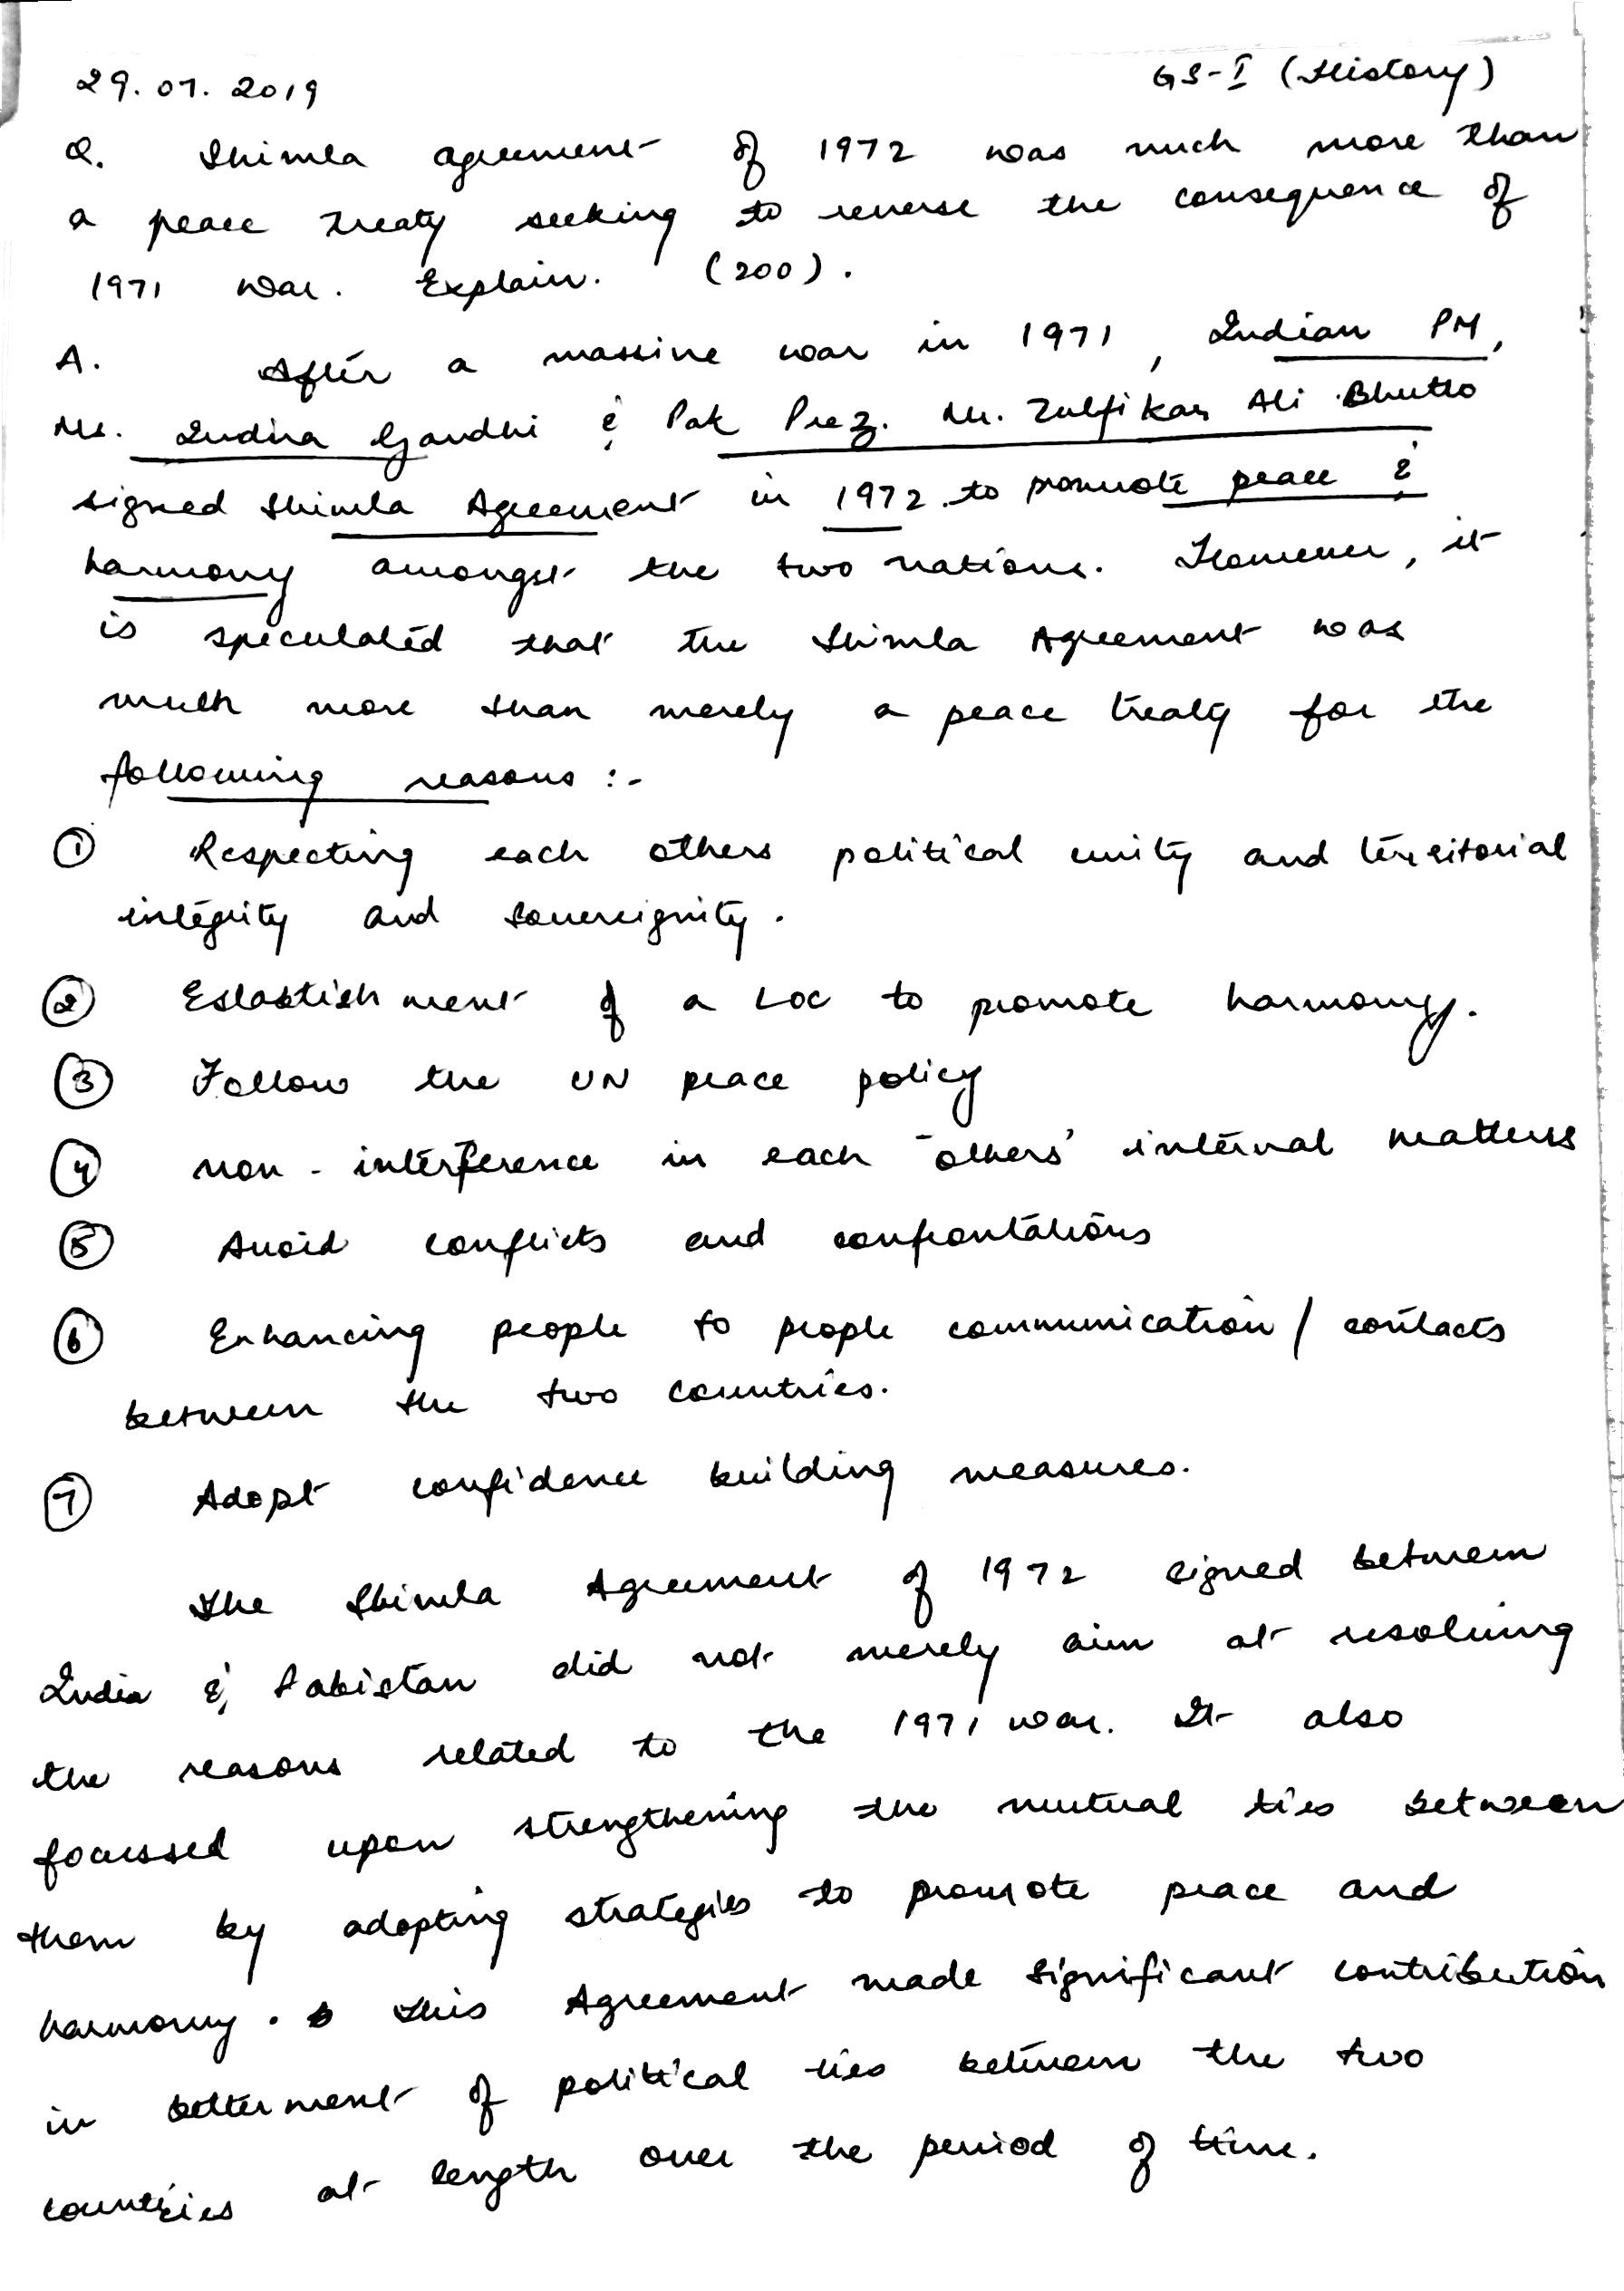 29.01.2019 GS-I (History)
Q. Shimla agreement of 1972 was much more than
a peace treaty seeking to reverse the consequence of
1971 war. Explain. (200).
A. After a massive war in 1971, Indian PM,
Ms. Indira Gandhi & Pak Prez. Mr. Zulfikar Ali Bhutto
signed Shimla Agreement in 1972 to promote peace &
harmony amongst the two nations. However, it
is speculated that the Shimla Agreement was
much more than merely a peace treaty for the
following reasons :-
① Respecting each others political unity and territorial
integrity and sovereignity.
② Establishment of a LOC to promote harmony.
③ Follow the UN peace policy
④ non-interference in each others' internal matters
⑤ Avoid conflicts and confrontations
⑥ Enhancing people to people communication / contacts
between the two countries.
⑦ Adopt confidence building measures.
The Shimla Agreement of 1972 signed between
India & Pakistan did not merely aim at resolving
the reasons related to the 1971 war. It also
focussed upon strengthening the mutual ties between
them by adopting strategies to promote peace and
harmony. This Agreement made significant contribution
in betterment of political ties between the two
countries at length over the period of time.